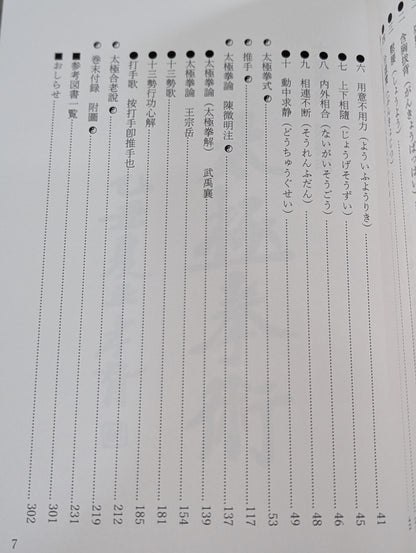 ●六 用意不用力(よういふようりき) 41
●七 上下相随(じょうげそうずい) 45
●八 内外相合(ないがいそうごう) 46
●九 相連不断(そうれんふだん) 48
●十 動中求静(どうちゅうぐせい) 49
太極拳式☯ 53
推手☯ 117
☯太極拳論 陳微明注☯ 137
●太極拳論(太極拳解) 武禹襄 139
●太極拳論 王宗岳 154
●十三勢歌 181
●十三勢行功心解 185
●打手歌 按打手即推手也 212
☯太極合老説☯ 219
☯巻末付録 附圖☯ 231
■参考図書一覧 301
■おしらせ 302
7